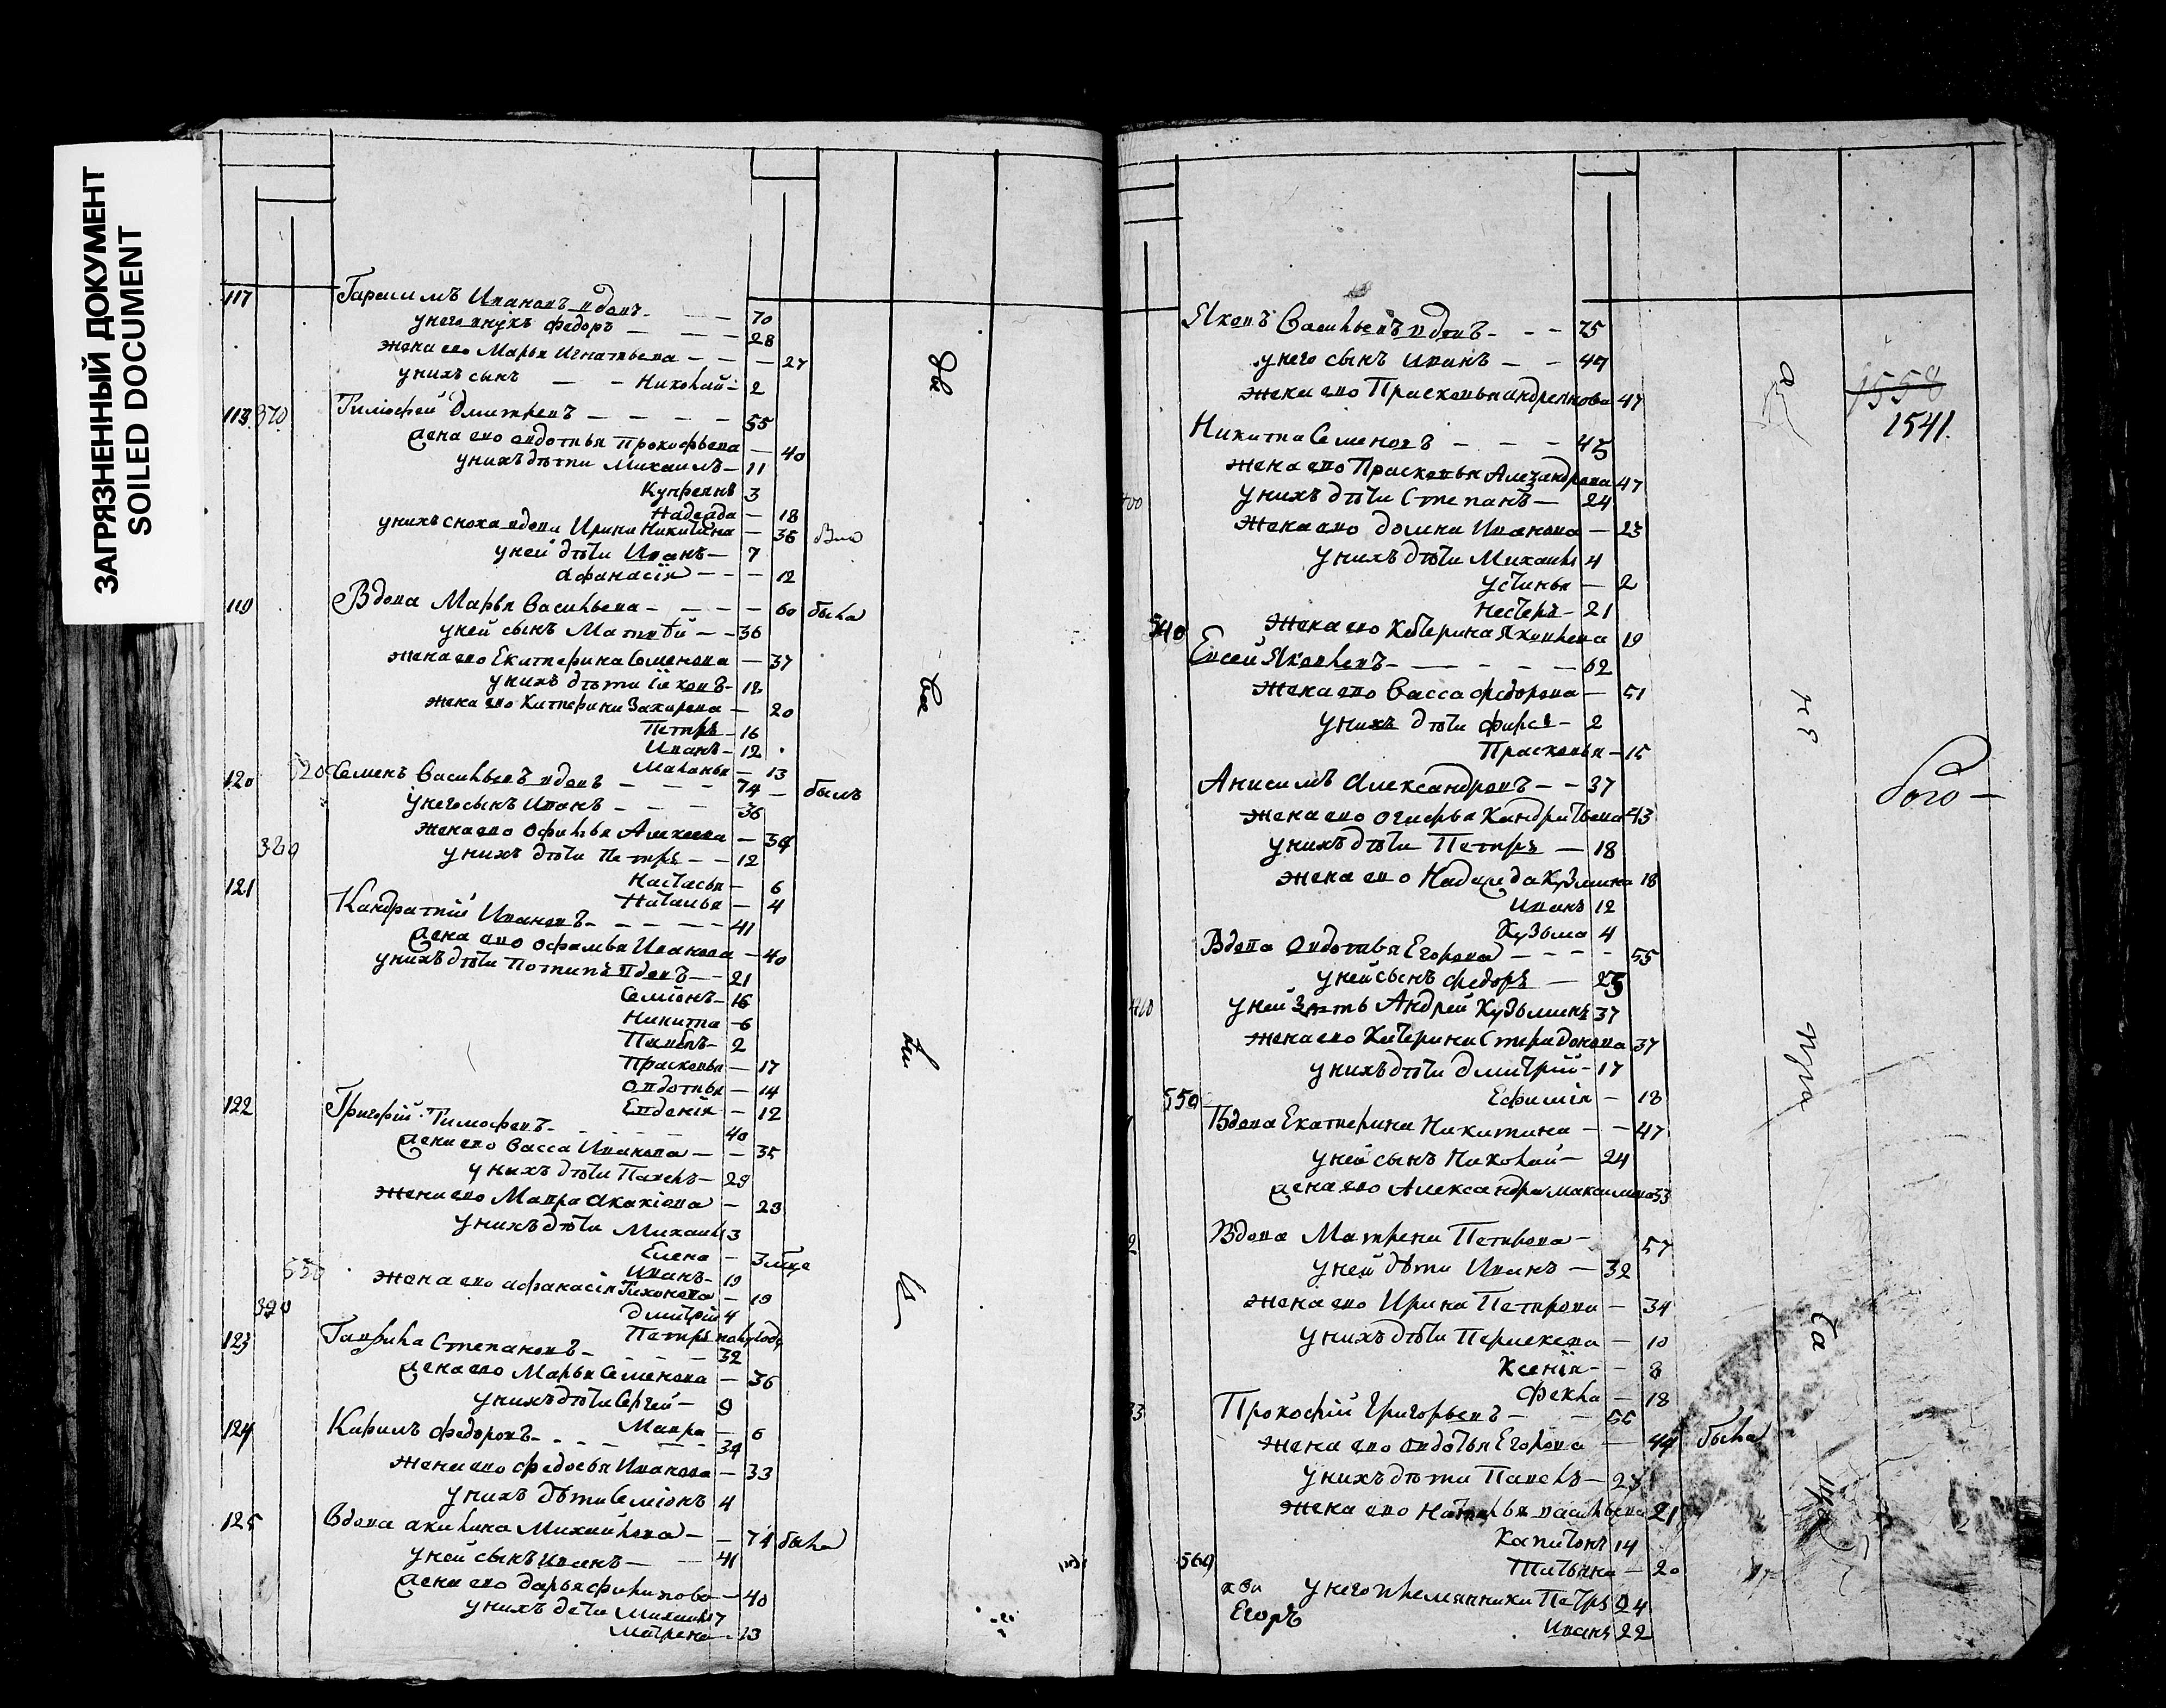 ЗАГРЯЗНЕННЫЙ ДОКУМЕНТ
SOILED DOCUMENT
117 Гарасимъ Ивановъ вдовъ - - 70
у него внукъ Федоръ - - - 28
жена ево Марья Игнатьева - - - 27
у нихъ сынъ - - Николай - 2
118 370 Тимофей Дмитревъ - - - - 55
жена ево Овдотья Прокофьева - 40
у нихъ дѣти Михаилъ - 11
Купреянъ 3
Надежда - 18
у нихъ сноха вдова Ирина Никитина - 36
у ней дѣти Иванъ - 7
Афанасія - - - 12
119 Вдова Марья Васильева - - - - 60 была
у ней сынъ Матвѣй - - 36
жена ево Екатерина Семенова - 37
у нихъ дѣти Яковъ - 18
жена ево Катерина Захарова - 20
Петръ - 16
Иванъ - 12
Маланья - 13
120 520 Семенъ Васильевъ вдовъ - - - 74 - былъ
у него сынъ Иванъ - - - 36
жена ево Офимья Алексеева - 34
380 у нихъ дѣти Петръ - - 12
Настасья - 6
Наталья - 4
121 Кандратий Ивановъ - - - - 41
жена ево Офимья Иванова - 40
у нихъ дѣти Потапъ вдовъ - - 21
Семіонъ - 16
Никита - 6
Павелъ - 2
Прасковья - 17
Овдотья - 14
Евденія - 12
122 Григорий Тимофевъ - - - - 40
жена ево Васса Иванова - - 35
у нихъ дѣти Павелъ - 29
жена ево Мавра Акакіева - 23
у нихъ дѣти Михаилъ 3
Елена - 3 мце
530 Иванъ - 19
жена ево Афанасія Тихонова - 19
390 Дмитрій 4
Петръ полугода
123 Гаврила Степановъ - - - - 32
жена ево Марья Семенова - 36
у нихъ дѣти Сергей - 9
Мавра - 6
124 Кирилъ Федоровъ - - - - 34
жена ево Федосья Иванова - 33
у нихъ дѣти Семіонъ 4
125 Вдова Акилина Михайлова - - 71 была
у ней сынъ Иванъ - - 41
жена ево Дарья Филипова - 40
у нихъ дети Михаилъ 17
Матрена - 13
Яковъ Васильевъ вдовъ - - - 75
у него сынъ Иванъ - - 47
жена ево Прасковья Андреянова 47
1558
1541.
Никита Семеновъ - - - 45
жена ево Прасковья Алезандрова 47
400 у нихъ дѣти Степанъ - 24
жена ево Домна Иванова - 23
у нихъ дѣти Михаилъ 4
Устинья - 2
Нестеръ - 21
540 жена ево Катерина Яковлева 19
Евсей Яковлевъ - - - - - 62
жена ево Васса Федорова - 51
у нихъ дѣти Фирсъ - 2
Прасковья - 15
Анисимъ Александровъ - - 37
жена ево Огнефья Кандратьева 43
у нихъ дѣти Петръ - 18
жена ево Надежда Кузмина 18
Иванъ 12
Кузьма 4
Вдова Овдотья Егорова - - - - 55
у ней сынъ Федоръ - 25
410 у ней зять Андрей Кузьминъ 37
жена ево Катерина Спиридонова 37
у нихъ дѣти Дмитрий - 17
550 Ефимія - 18
Вдова Екатерина Никитина - - 47
у ней сынъ Николай - 24
жена ево Александра Максимова 33
Вдова Матрена Петрова - 57
у ней дѣти Иванъ - 32
жена ево Ирина Петрова - 34
у нихъ дѣти Перасковья - 10
Ксенія - - 8
Фекла - 18
Прокофий Григорьевъ - - 55
жена ево Овдотья Егорова - 44 была
у нихъ дѣти Павелъ - 23
жена ево Наталья Васильева 21
Капитонъ 14
560 Татьяна - 20
у него племянники Петръ 24
Егоръ
Иванъ 22